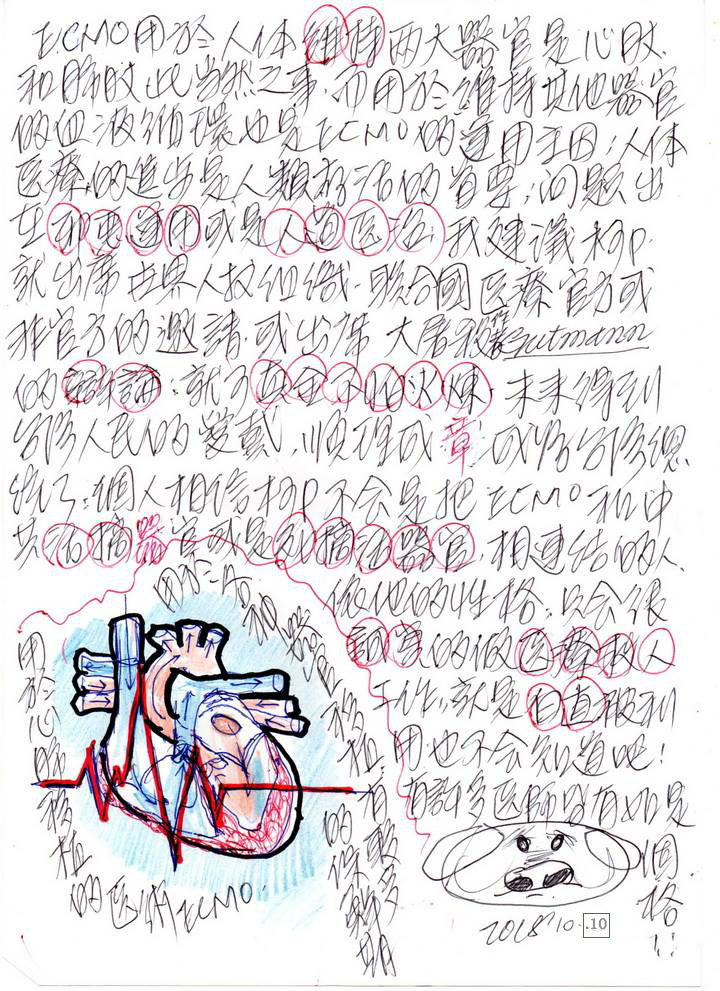 ECMO用於人体維持兩大器官是心臟.
和肺臟此當然之事,而用於維持其他器官
的血液循環也是ECMO的運用主因;人体
医療的進步是人類存活的首要;問題出
在 運用或是人道医治,我建議柯P.
就出席世界人权組織.聯合國医療官方或
非官方的邀請.或出席 大屠殺 Gutmann
的辯論;就了真金不怕火煉,未來得到
台湾人民的愛戴,順理成章 成為台湾總
統了;個人相信柯P不会是把ECMO和中
共活摘器官或是 摘活器官,相連結的人.
依他的性格,只会很
誠實的做医療救人
工作,就是 被利
用也不会知道吧!
有許多医師皆有如是
個格!!
用於心臟移植的医術ECMO.
移植有較多的保鮮期
2018'10.10